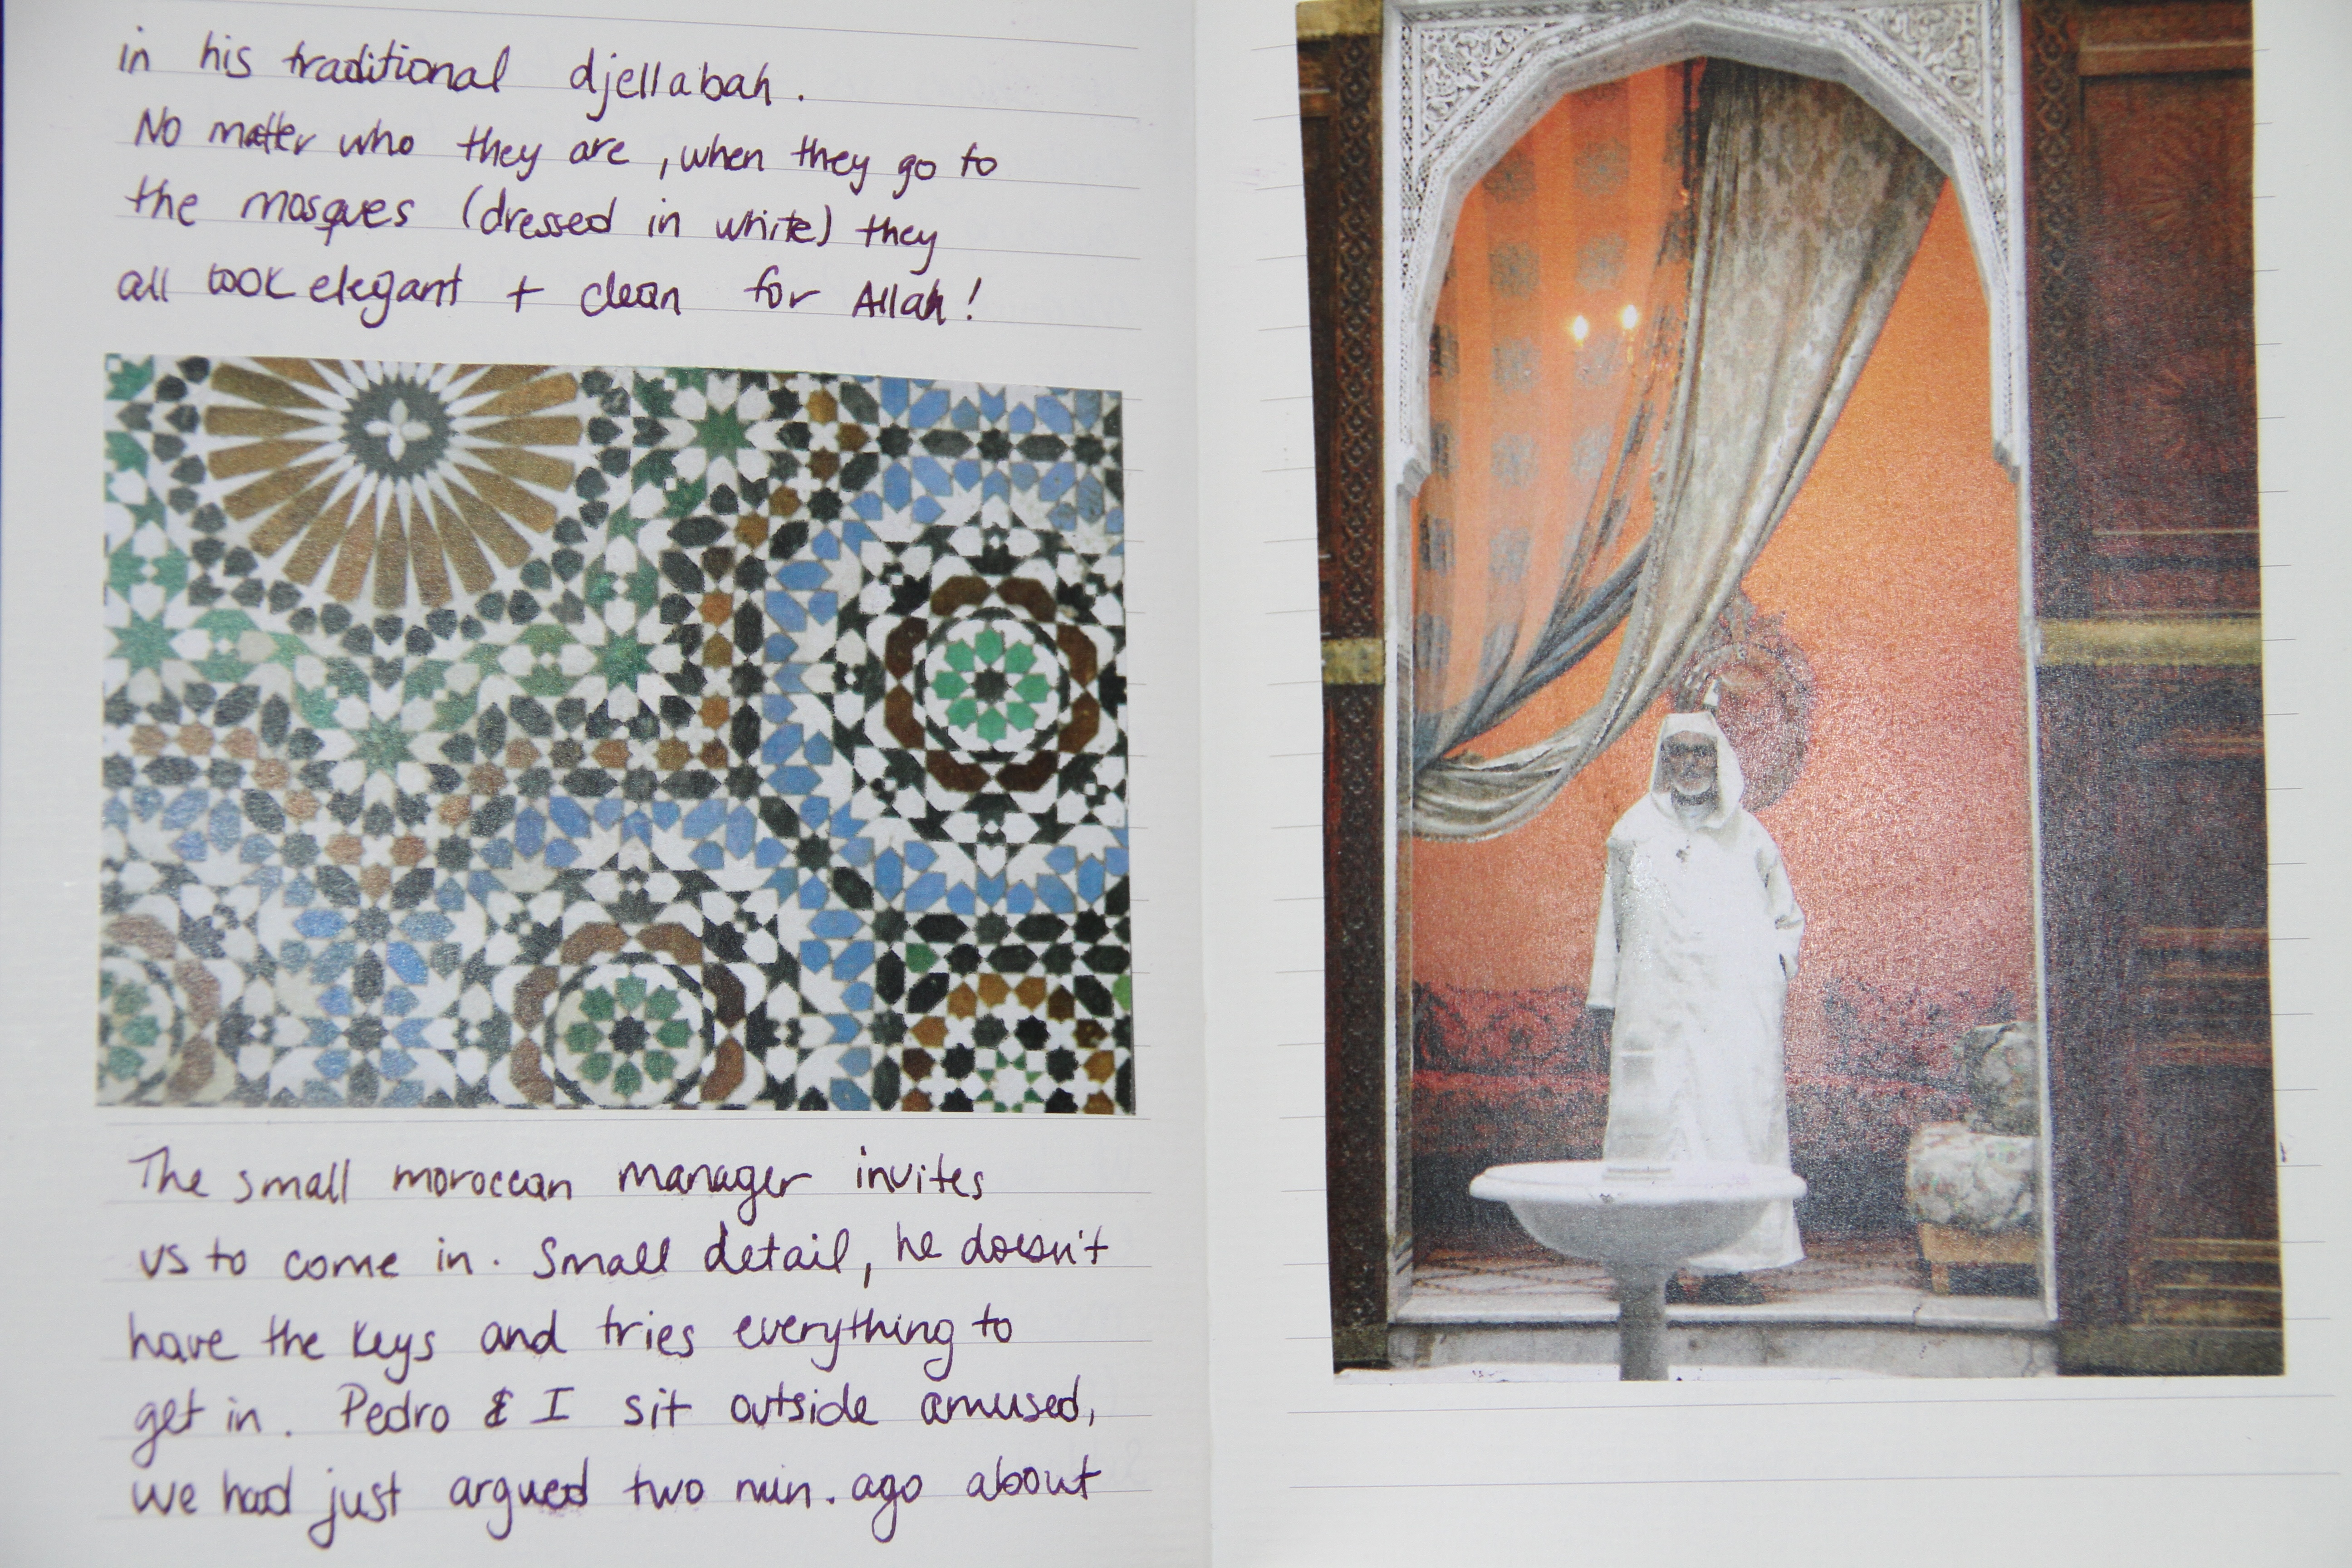 in his traditional djellabah.
No matter who they are, when they go to
the mosques (dressed in white) they
all look elegant + clean for Allah!
The small moroccan manager invites
us to come in. Small detail, he doesn't
have the keys and tries everything to
get in. Pedro & I sit outside amused,
we had just argued two min. ago about